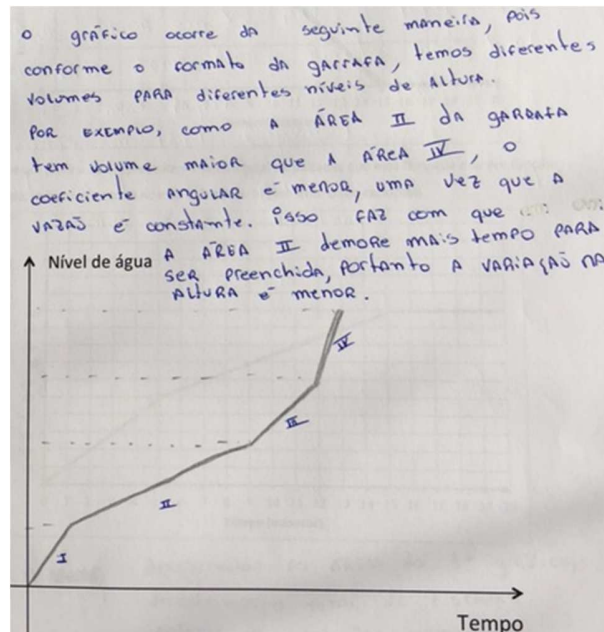 O gráfico ocorre da seguinte maneira, pois
conforme o formato da garrafa, temos diferentes
volumes para diferentes níveis de altura.
Por exemplo, como a área II da garrafa
tem volume maior que a área IV, o
coeficiente angular é menor, uma vez que a
vazaõ é constante. isso faz com que
a área II demore mais tempo para
ser preenchida, portanto a variaçaõ na
altura é menor.
Nível de água
IV
III
II
I
Tempo